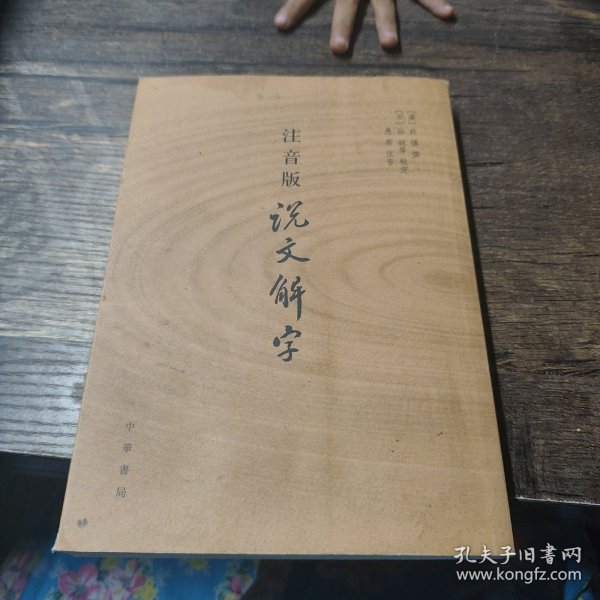 [漢] 許慎 撰
[宋] 徐鉉等 校定
愚若 注音
注音版
说文解字
中華書局
孔夫子旧书网
www.kongfz.com